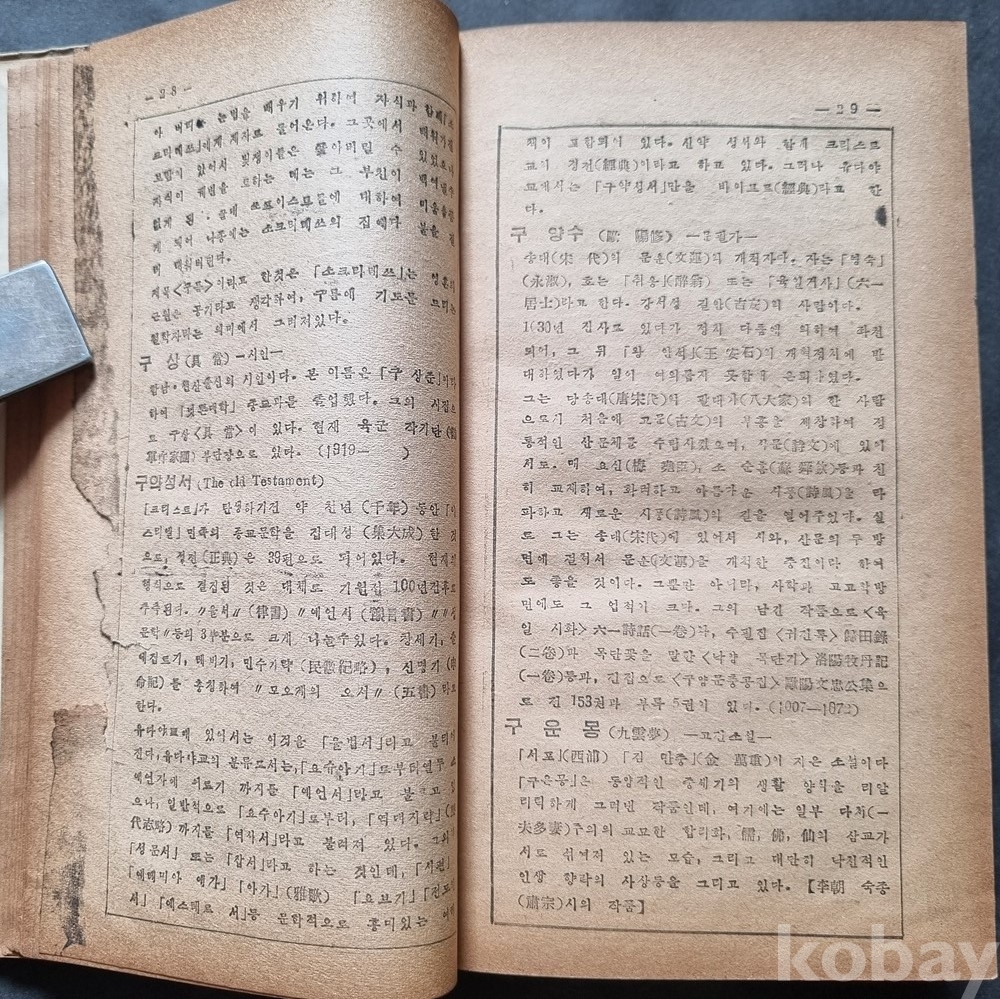 — 28 —
아 버리는 논법을 배우기 위하여 자식과 함께「소
크라테쓰」에게 제자로 들어온다. 그곳에서
보람이 있어서 빚쟁이들은 쫓아버릴 수 있었으나
자식이 궤변을 토하는 데는 그 부친이
없게 된 . 끝에 쏘피이스트들에 대하여 미움을
게 되어 나중에는 소크라테쓰의 집에다 불을 질
러 버린다.
제목<구름>이라고 한것은 「소크라테쓰」는 영혼의
근원은 공기라고 생각하여, 구름에 기도를 드리는
철학자라는 의미에서 그러져있다.
구 상 (具 常) —시인—
함남·원산출신의 시인이다. 본 이름은 「구 상준」이라
하여 「일본대학」 종교과를 졸업했다. 그의 시집으
로 구상<具 常>이 있다. 현재 육군 작가단(陸
軍作家團) 부단장으로 있다. (1919— )
구약성서 (The old Testament)
「크리스트」가 탄생하기전 약 천년(千年)동안「이
스라엘」민족의 종교문학을 집대성(集大成)한 것
으로, 정전(正典)은 39편으로 되어있다. 현재의
형식으로 결집된 것은 대체로 기원전 100년전후로
추측된다. 〃율서〃(律書)〃예언서(預言書)〃〃성
문학〃등의 3부분으로 크게 나눌수있다. 창세기, 출
애집트기, 레비기, 민수기략(民數紀略), 신명기(申
命記)를 총칭하여 〃모오제의 오서〃(五書)라고
한다.
유다야교에 있어서는 이것을 「율법서」라고 불리어
진다,유다야교의 분류로서는,「요슈아기」로부터
예언자에 이르기 까지를 「예언서」라고 불르고
으나, 일반적으로 「요수아기」로부터, 「역대지략」(歷
代志略)까지를 「역사서」라고 불려져 있다. 그의
「성문서」 또는 「잡서」라고 하는 것인데, 「시편」
「예레미아 애가」「아가」(雅歌) 「요브기」「전도
서」「에스테르 서」등 문학적으로 흥미있는 여러
— 29 —
책이 포함되어 있다. 신약 성서와 함께 크리스트
교의 경전(經典)이라고 하고 있다. 그러나 유다야
교에서는「구약성서」만을 바이프르(經典)라고 한
다.
구 양수 (歐 陽修) —문필가—
송대(宋 代)의 문운(文運)의 개척자다. 자는「영숙」
(永淑), 호는 「취옹」(醉翁) 또는 「육일거사」(六一
居士)라고 한다. 강서성 길안(吉安)의 사람이다.
1030년 진사로 있다가 정치 다툼에 의하여 좌천
되어, 그 뒤 「왕 안석」(王 安石)의 개혁정치에 반
대하였다가 일이 여의롭지 못함에 은퇴하였다.
그는 당송대(唐宋代)의 팔대가(八大家)의 한 사람
으로기 처음에 고문(古文)의 부흥을 제창하여 정
통적인 산문체를 수립시켰으며, 시문(詩文)에 있어
서도. 매 요신(梅 堯臣), 소 순흠(蘇 舜欽)등과 친
히 교제하여, 화려하고 아름다운 시풍(詩風)을 타
파하고 새로운 시풍(詩風)의 길을 열어주었다. 실
로 그는 송대(宋代)에 있어서 시와, 산문의 두 방
면에 걸쳐서 문운(文運)을 개척한 중진이라 하여
도 좋을 것이다. 그뿐만 아니라, 사학과 고고학방
면에도 그 업적이 크다. 그의 남긴 작품으로<육
일 시화>六一詩話(一卷)와, 수필집 <귀전록>歸田錄
(二卷)과 목단꽃을 말한<낙양 목단기>洛陽牧丹記
(一卷)등과, 전집으로<구양문충공집>歐陽文忠公集으
로 전 153권과 부록 5권이 있다. (1007—1072)
구 운 몽 (九雲夢) —고전소설—
「서포」(西浦) 「김 만중」(金 萬重)이 지은 소설이다
「구운몽」은 동양적인 중세기의 생활 양식을 리알
리틱하게 그러던 작품인데, 여기에는 일부 다처(一
夫多妻)주의의 교묘한 합리화, 儒, 佛, 仙의 삼교가
서로 섞여져 있는 모습, 그리고 대단히 낙천적인
인생 향락의 사상등을 그리고 있다. 【李朝 숙종
(肅宗)시의 작품】
kobay